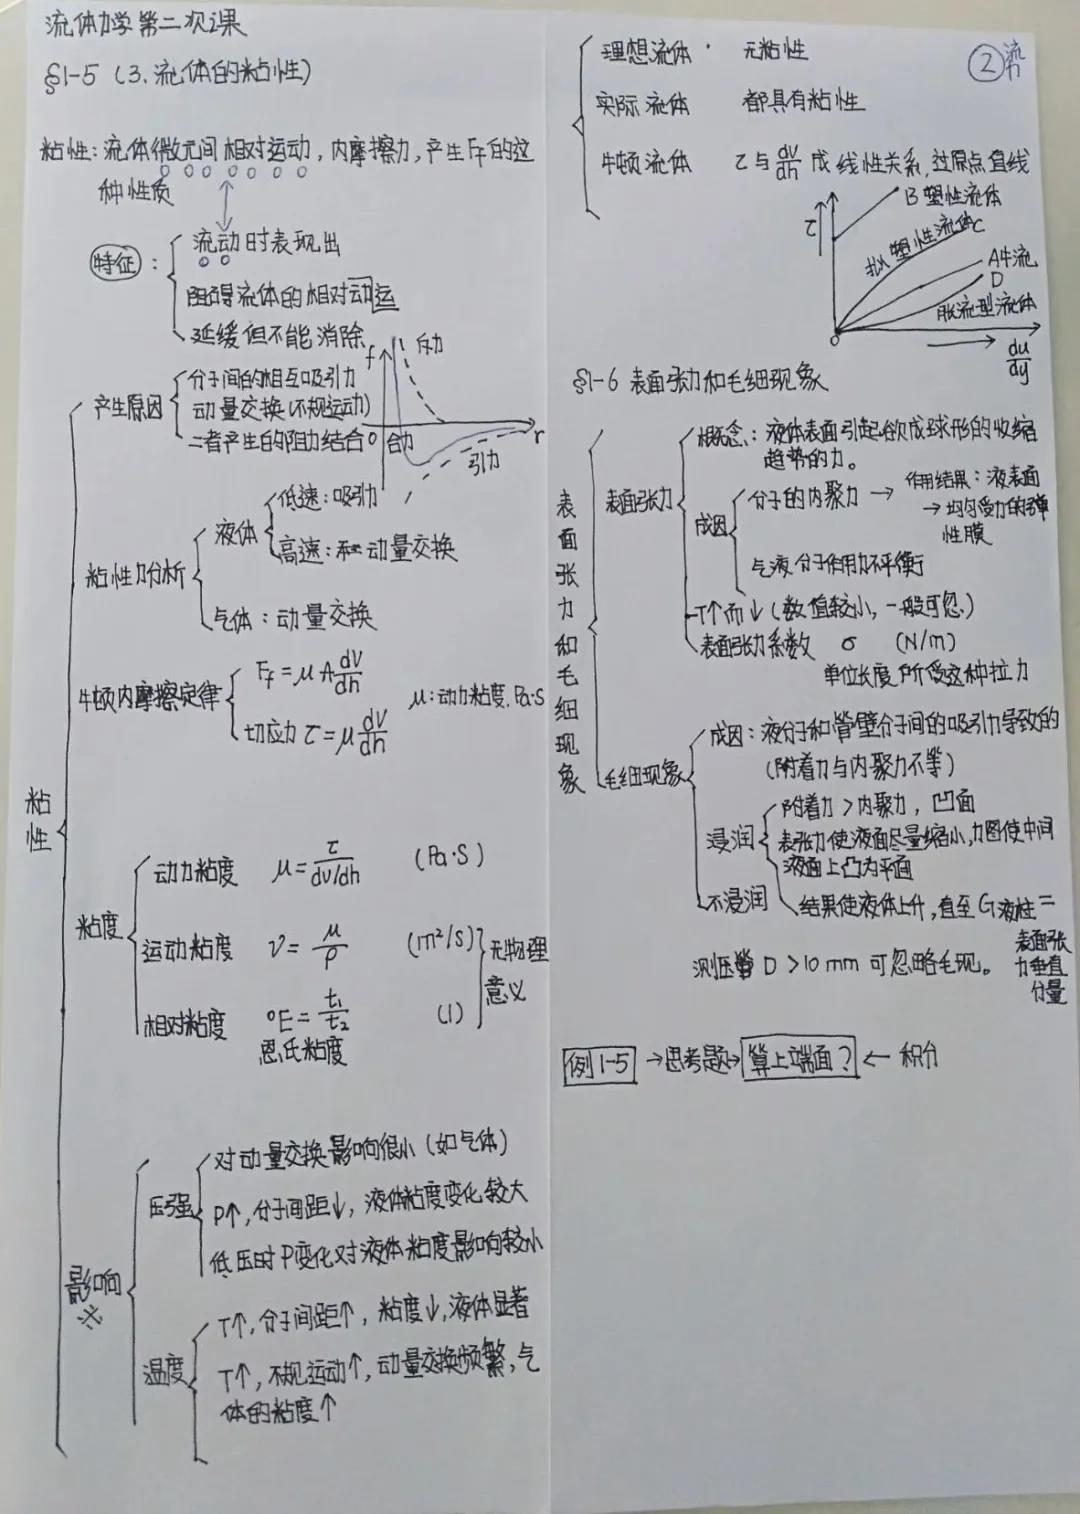 流体力学第二次课
§1-5（3.流体的粘性）
粘性：流体微元间相对运动，内摩擦力，产生Ff的这
种性质
特征：
流动时表现出
阻碍流体的相对动运
延缓但不能消除
产生原因
分子间的相互吸引力
动量交换（不规运动）
二者产生的阻力结合
f
斥力
0
合力
引力
r
粘性力分析
液体
低速：吸引力
高速：动量交换
气体：动量交换
牛顿内摩擦定律
Ff = μA dv/dh
切应力 τ = μ dv/dh
μ：动力粘度.Pa·S
粘性
粘度
动力粘度 μ = τ / dv/dh (Pa·S)
运动粘度 ν = μ/ρ (m²/S)
相对粘度 °E = t₁/t₂ (1)
恩氏粘度
无物理
意义
影响
压强
对动量交换影响很小（如气体）
P↑,分子间距↓，液体粘度变化较大
低压时P变化对液体粘度影响较小
温度
T↑,分子间距↑，粘度↓,液体显著
T↑，不规运动↑,动量交换频繁,气
体的粘度↑
② 流力
理想流体 无粘性
实际流体 都具有粘性
牛顿流体 τ与dv/dh成线性关系,过原点直线
τ
B塑性流体
拟塑性流体C
A牛流
D
胀流型流体
0
du/dy
§1-6 表面张力和毛细现象
表面张力和毛细现象
表面张力
概念：液体表面引起欲成球形的收缩
趋势的力。
成因
分子的内聚力 → 作用结果：液表面
→均匀受力的弹
性膜
气液分子作用力不平衡
T↑而↓（数值较小，一般可忽）
表面张力系数 σ (N/m)
单位长度所受这种拉力
毛细现象
成因：液分子和管壁分子间的吸引力导致的
（附着力与内聚力不等）
浸润
附着力>内聚力，凹面
表张力使液面尽量缩小,力图使中间
液面上凸为平面
不浸润
结果使液体上升,直至G液柱=
表面张
力垂直
分量
测压管D>10mm可忽略毛现。
例1-5 →思考题→ 算上端面？ ← 积分